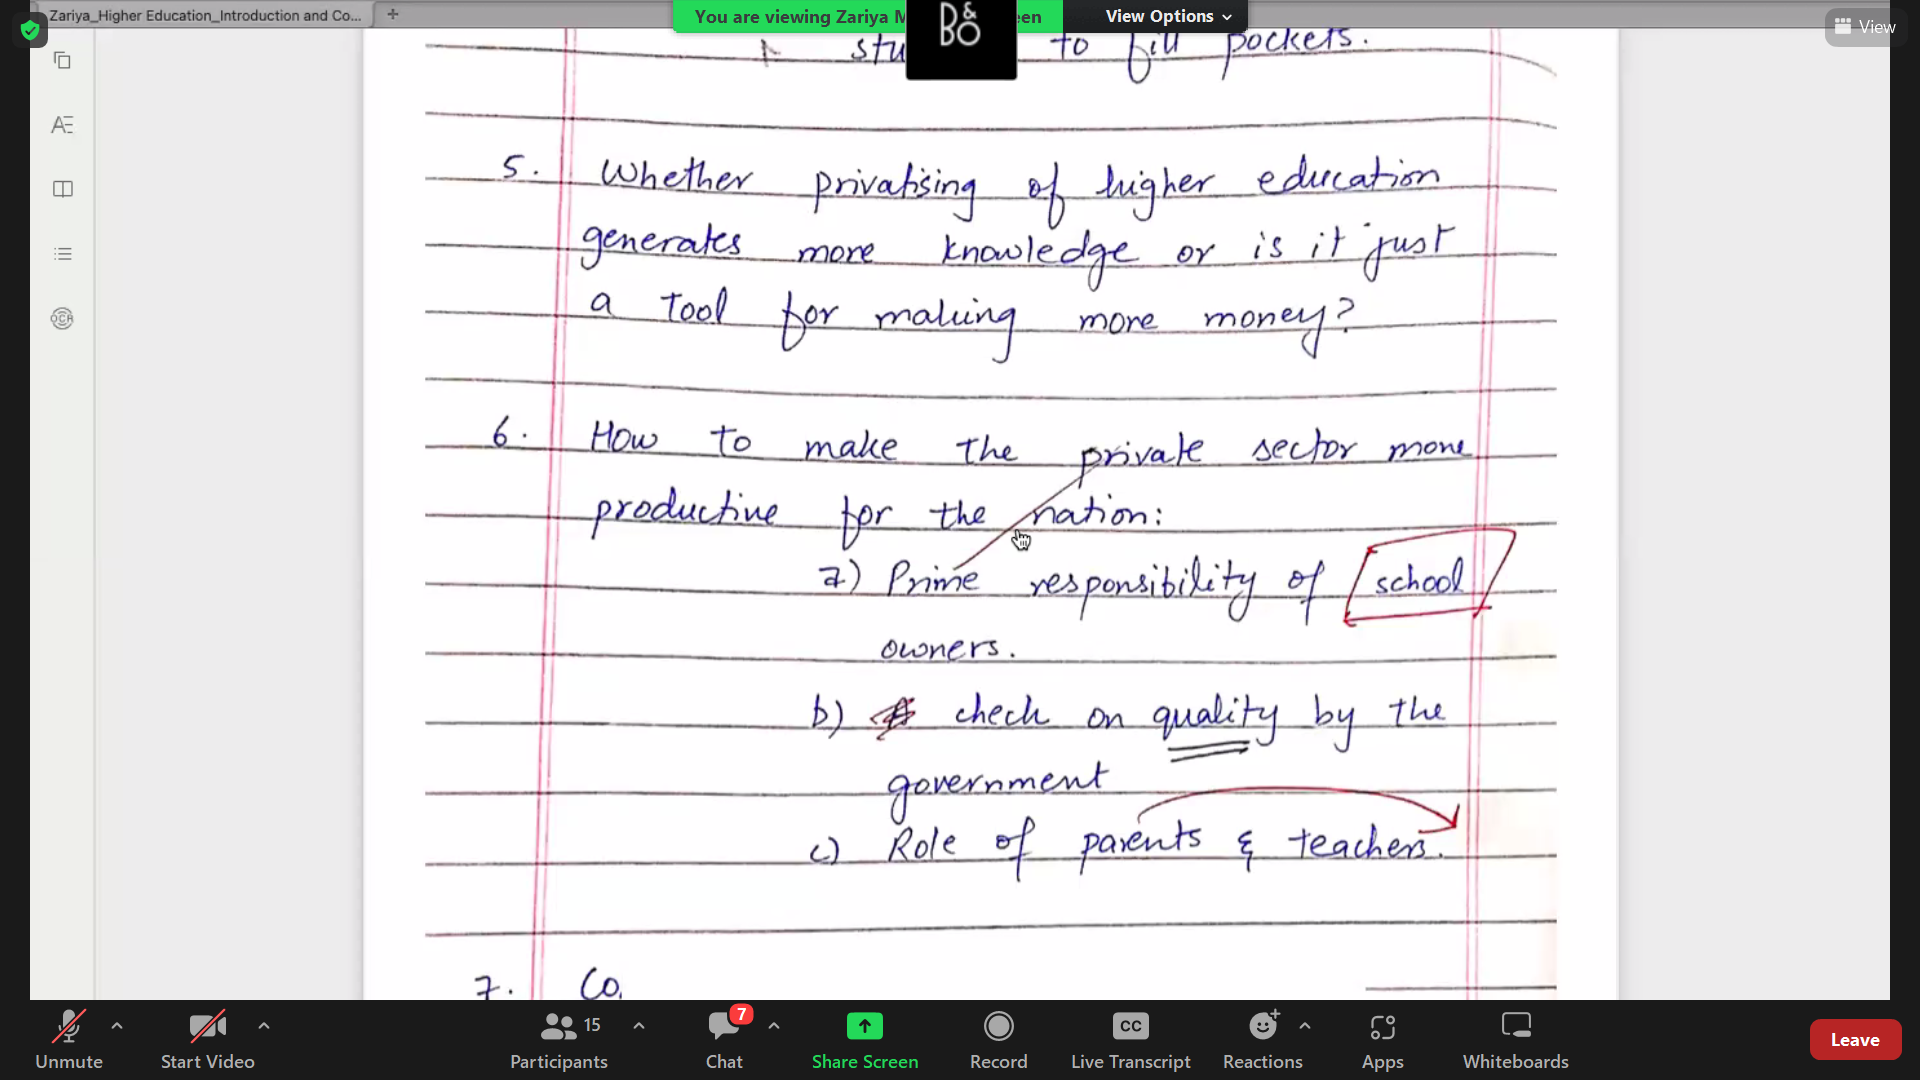 Zariya_Higher Education_Introduction and Co...
You are viewing Zariya M
en
View Options
View
B&O
to fill pockets.
5. Whether privatising of higher education
generates more knowledge or is it just
a tool for making more money?
6. How to make the private sector more
productive for the nation:
a) Prime responsibility of school
owners.
b) check on quality by the
government
c) Role of parents & teachers.
7. Co.
OCR
Unmute
Start Video
15
Participants
7
Chat
Share Screen
Record
CC
Live Transcript
Reactions
Apps
Whiteboards
Leave